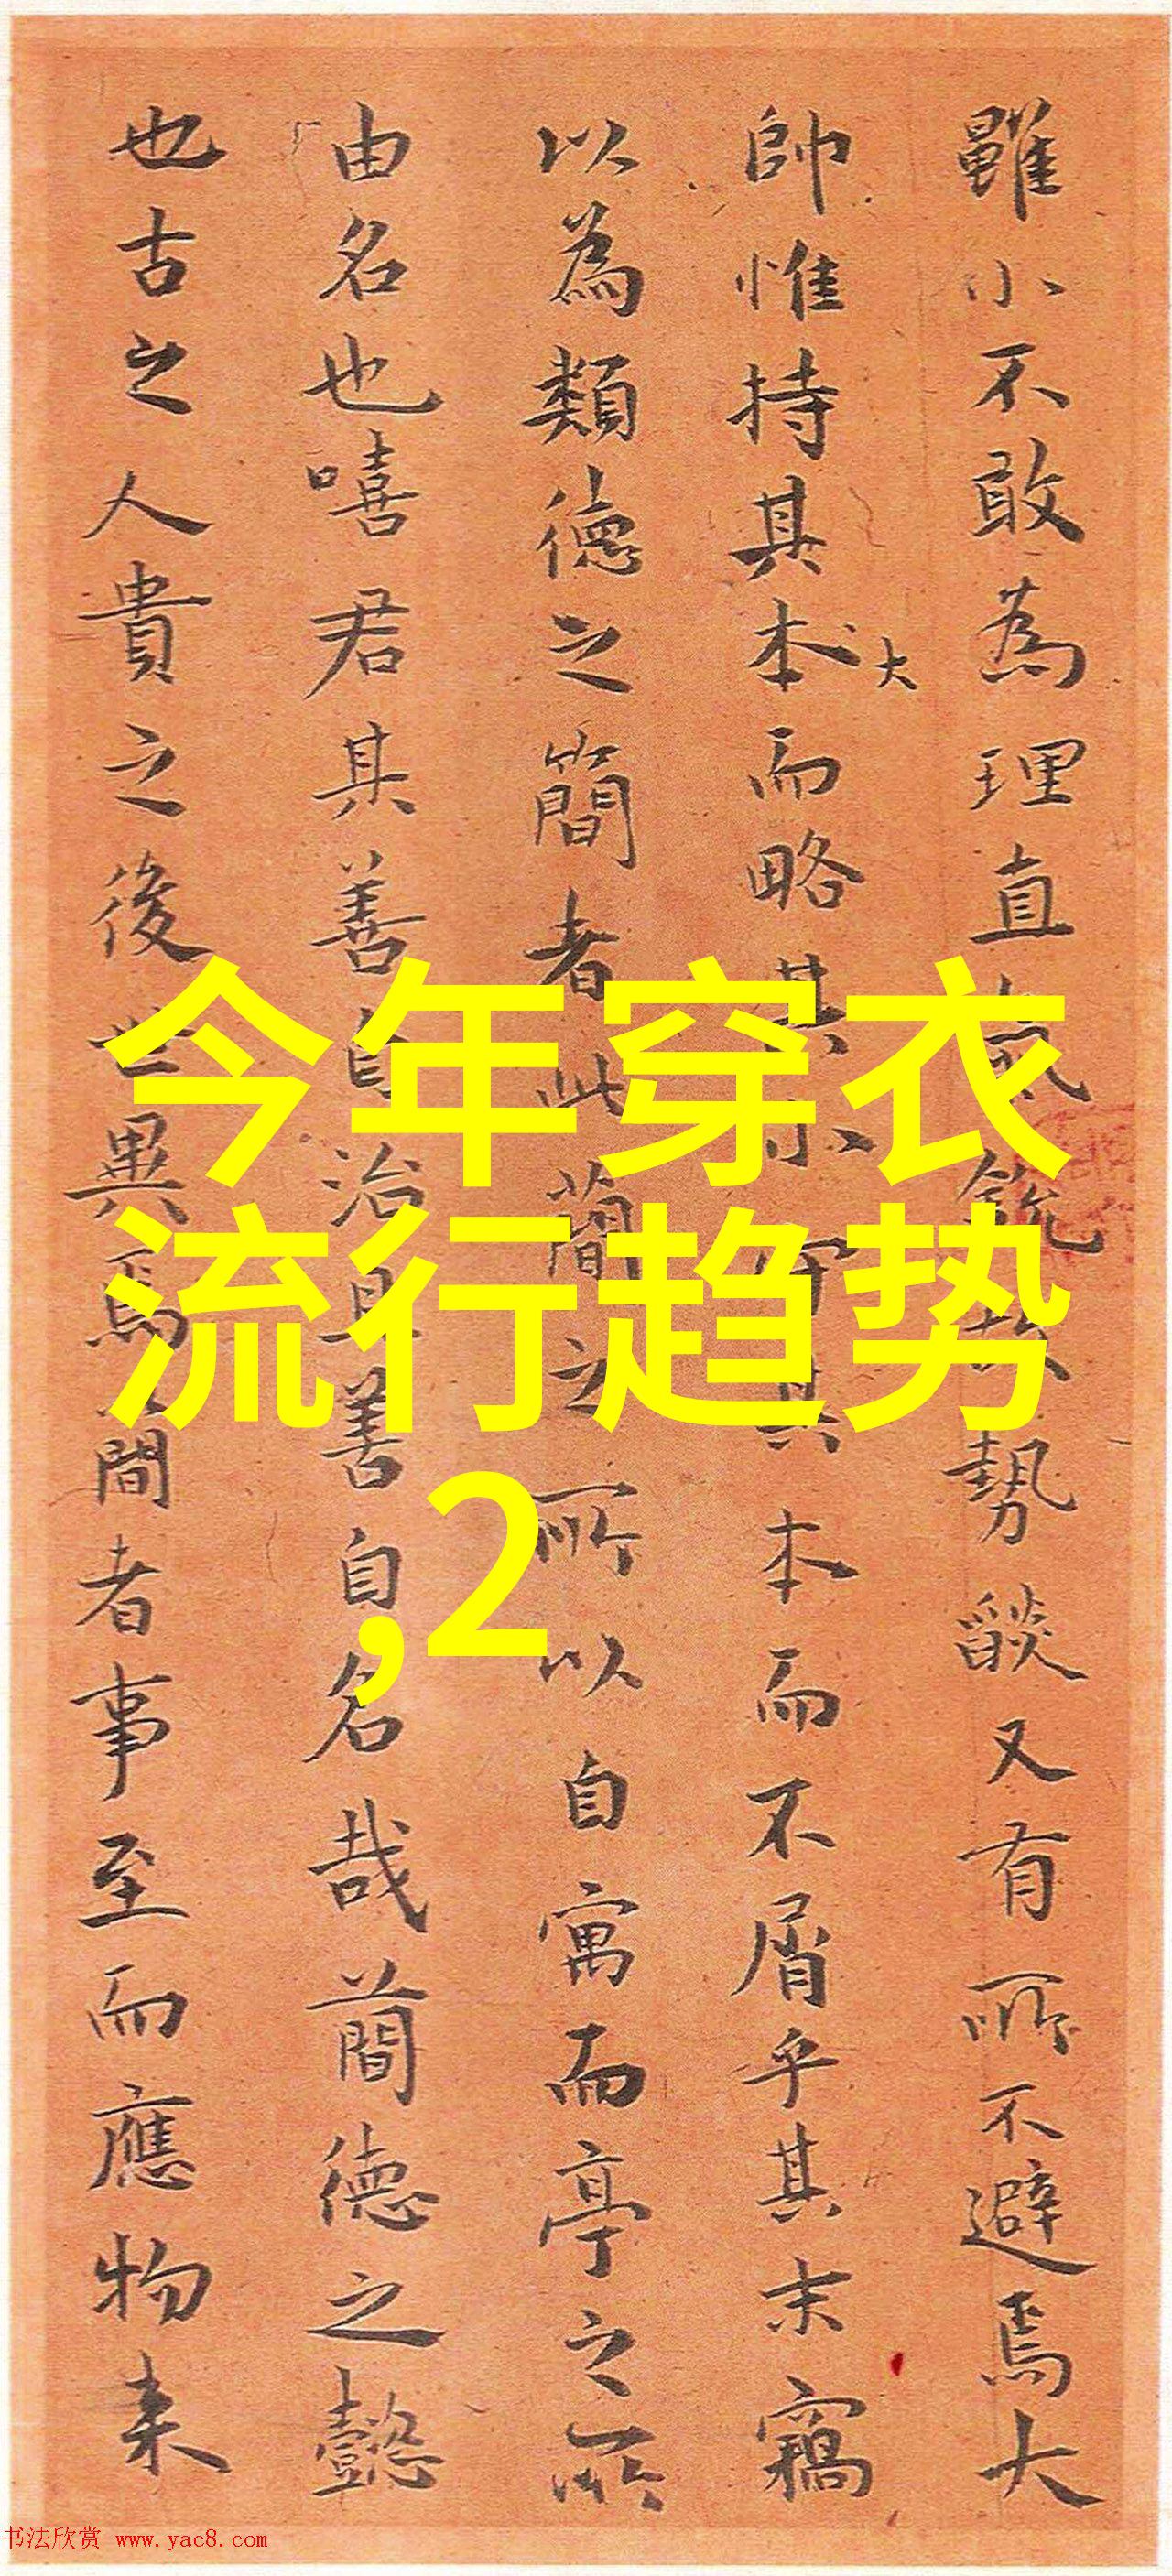 雖小不敢為理直氣銳𫝑勢燄又有所不避焉大
帥惟持其本大而略其末守其本而不屑乎其末竊
以為類德之簡者此簡之所以自寓而亭之所
由名也嘻君其善自治且善自名哉簡德之懿
也古之人貴之後世異焉簡者事至而應物来
今年穿衣
流行趋势
,2
书法欣赏 www.yac8.com